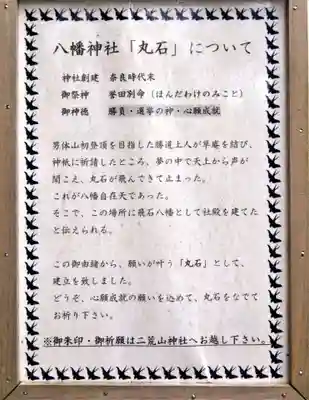 八幡神社「丸石」について
神社創建　奈良時代末
御祭神　誉田別命（ほんだわけのみこと）
御神徳　勝負・選挙の神・心願成就
男体山初登頂を目指した勝道上人が草庵を結び、
神祇に祈請したところ、夢の中で天上から声が
聞こえ、丸石が飛んできて止まった。
これが八幡自在天であった。
そこで、この場所に飛石八幡として社殿を建てた
と伝えられる。
この御由緒から、願いが叶う「丸石」として、
建立を致しました。
どうぞ、心願成就の願いを込めて、丸石をなでて
お祈り下さい。
※御朱印・御祈願は二荒山神社へお越し下さい。